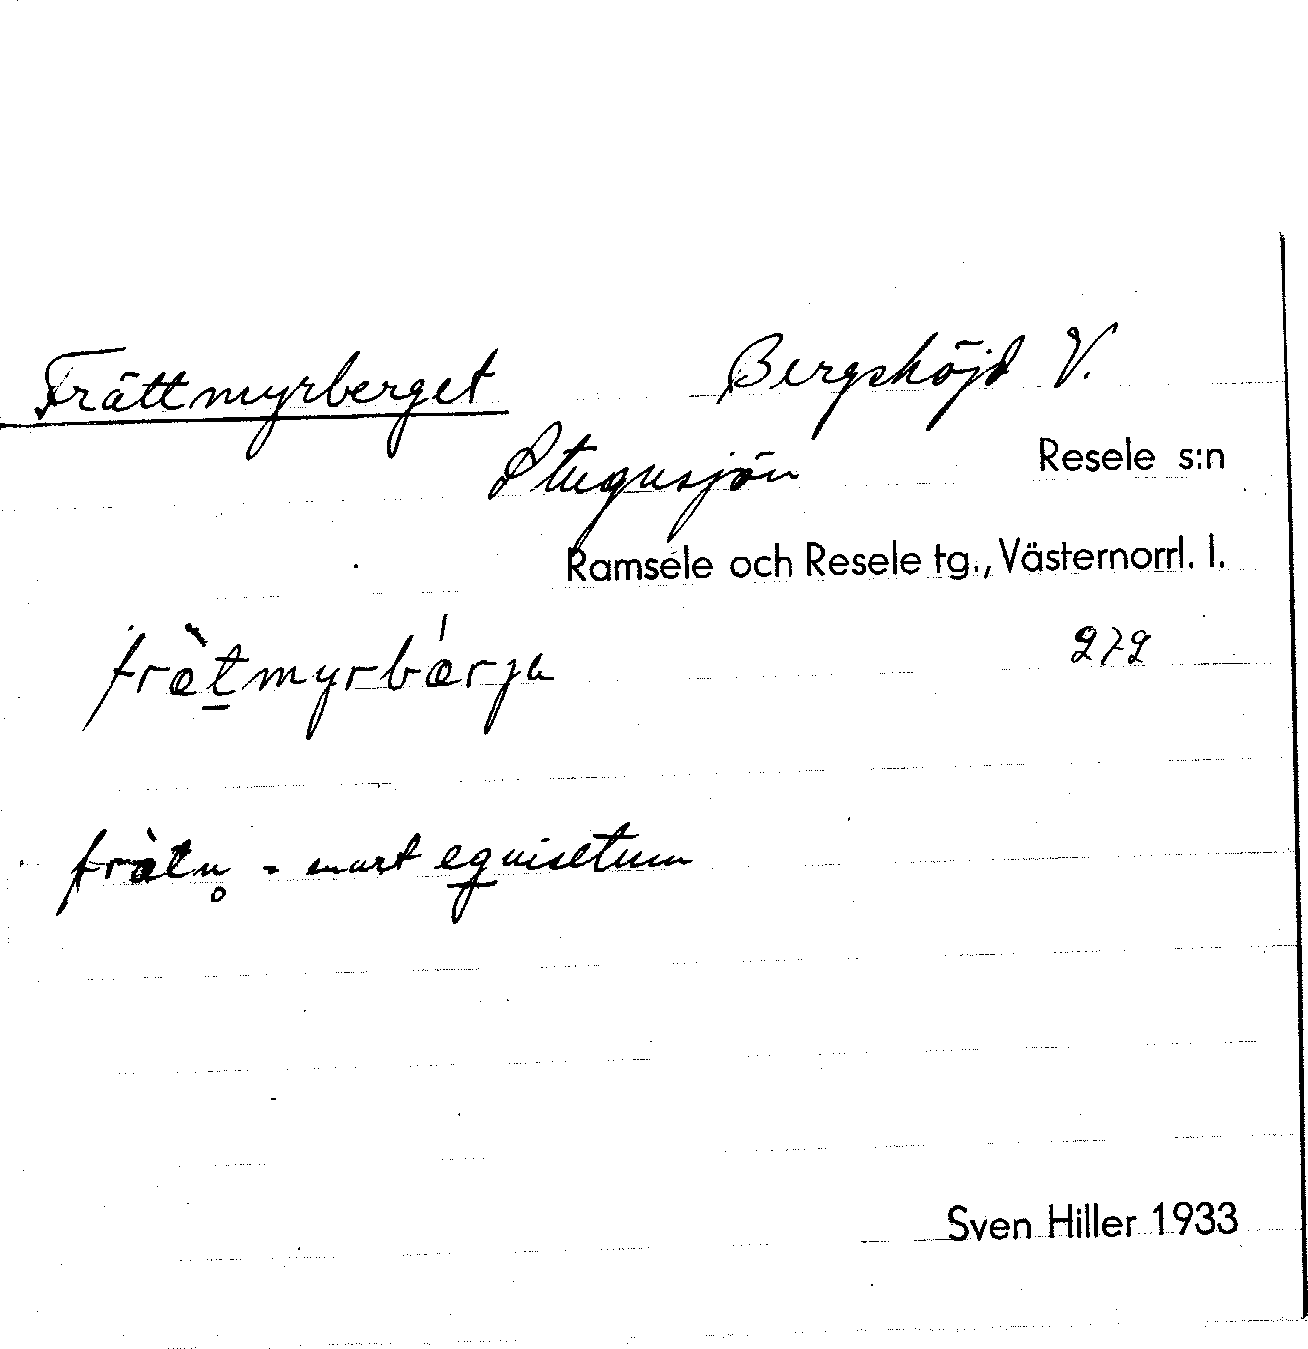 Frättmyrberget Bergshöjd V.
Stugusjön Resele s:n
Ramsele och Resele tg., Västernorrl. l.
frὰt̠myrbárja 272
fràtn̥ - equisetum
Sven Hiller 1933